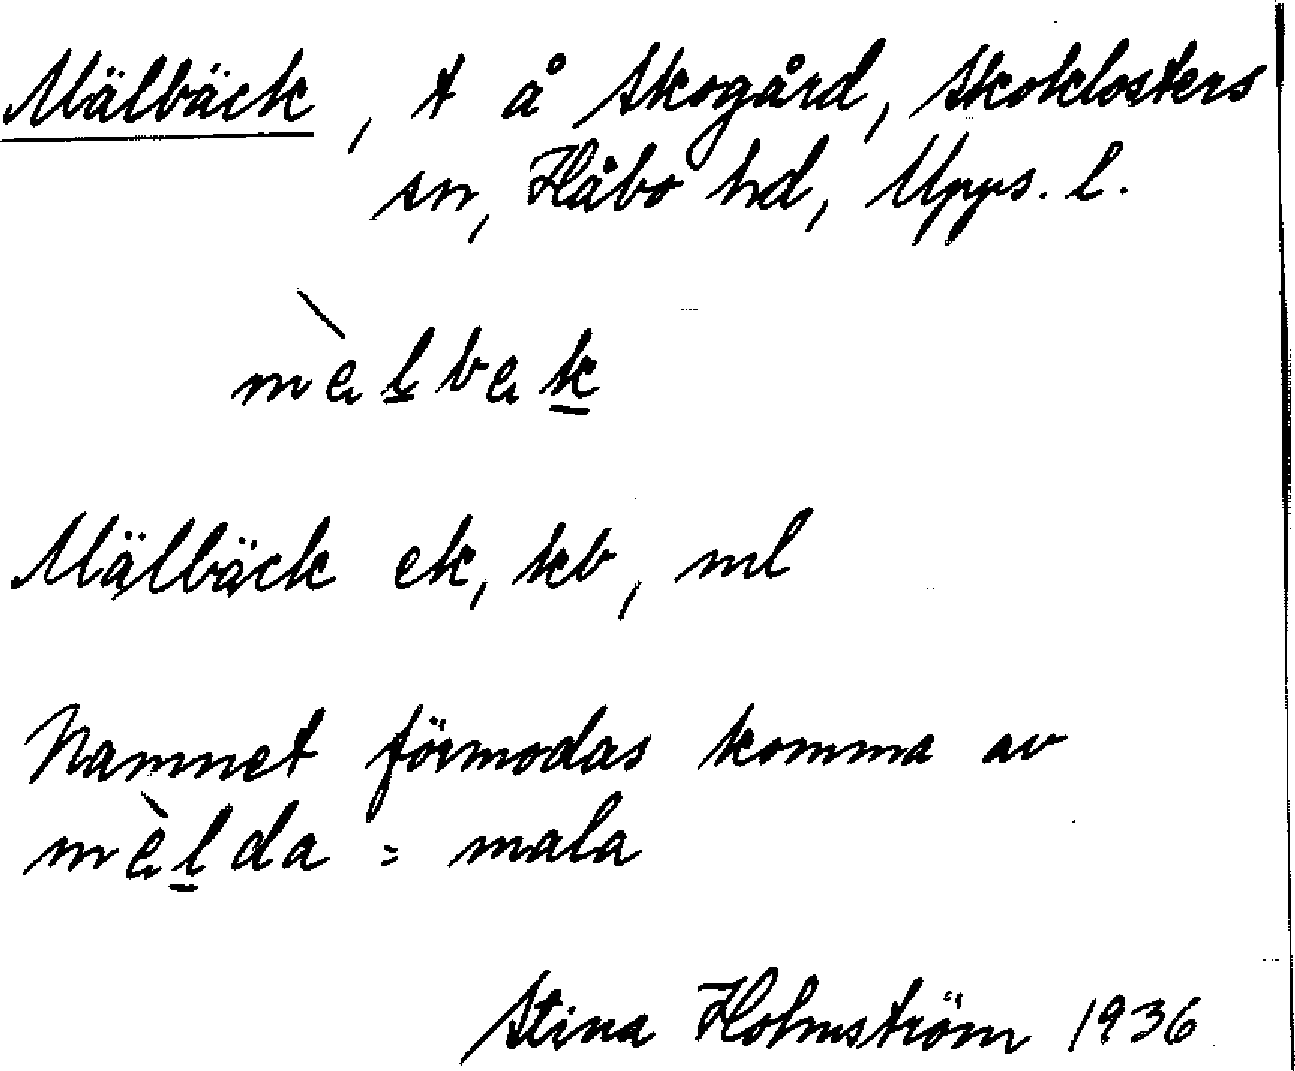 Mälbäck, t å Skogård, Skoklosters
sn, Håbo hd, Upps. l.
mὲlbεk
Mälbäck ek, kb, ml
Namnet förmodas komma av
mὲlda = mala
Stina Holmström 1936